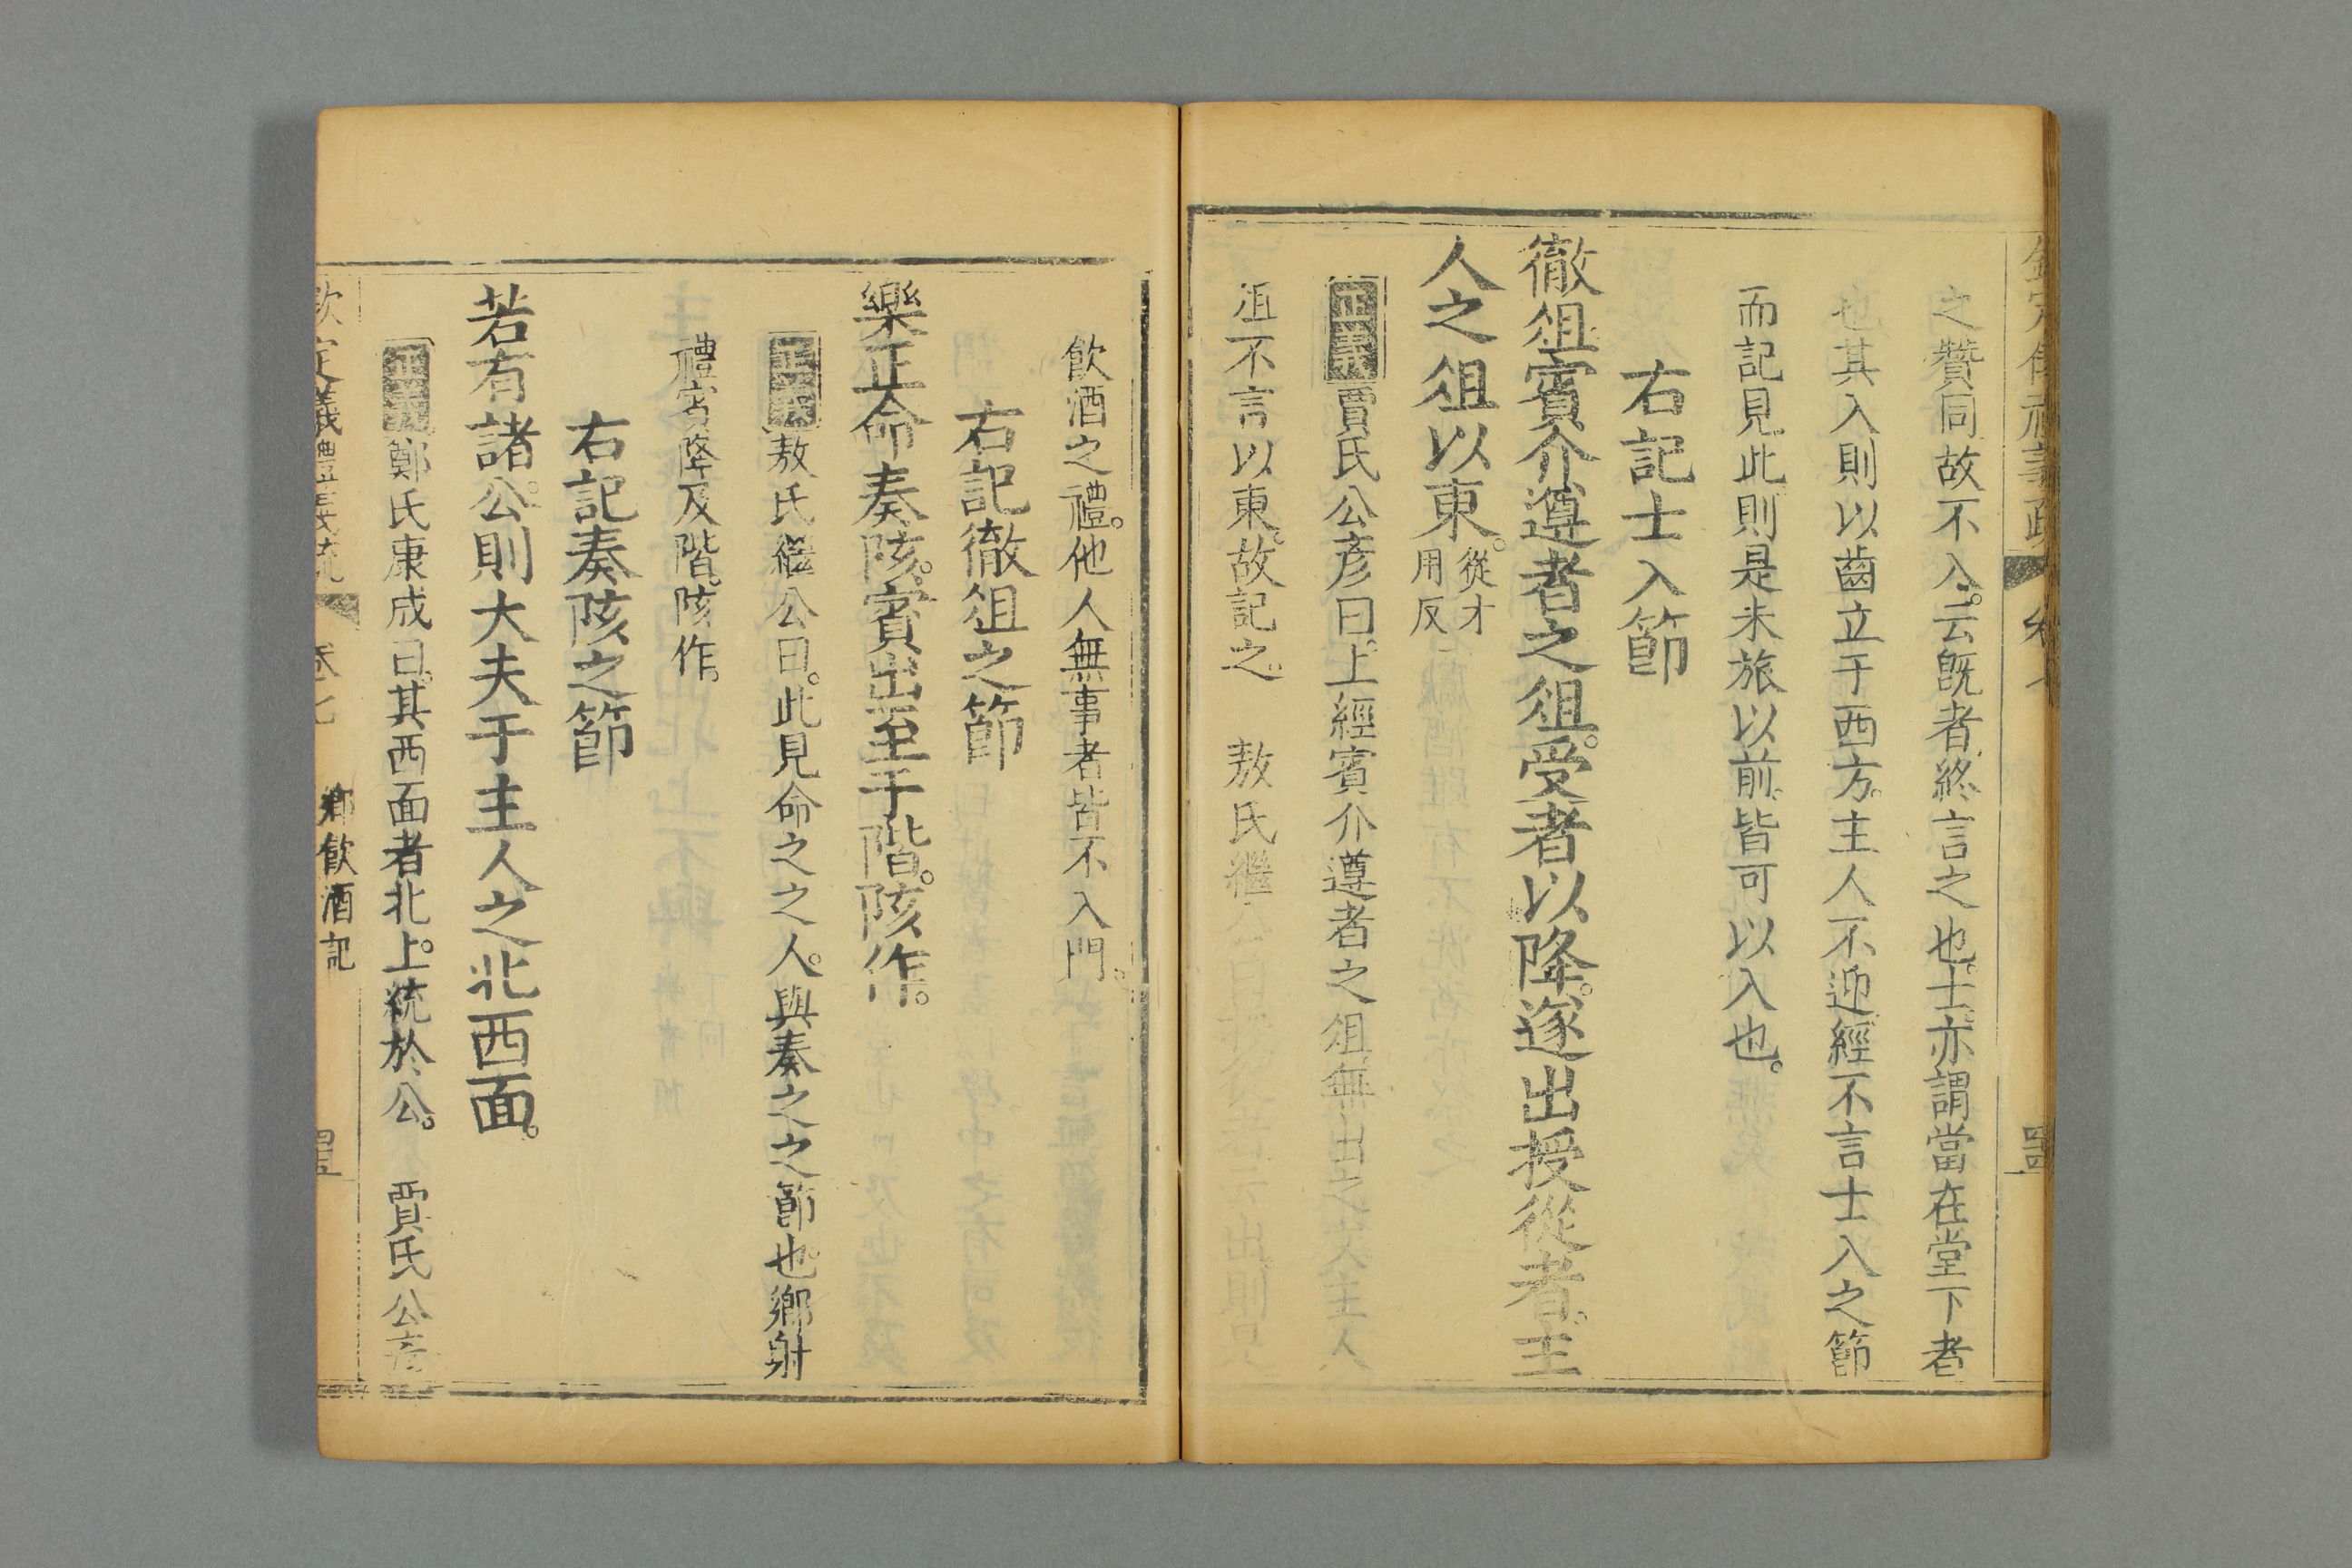 之贊同故不入。云旣者終言之也。士。亦謂當在堂下者
也其入則以齒立于西方。主人不迎經不言士入之節
而記見此則是未旅以前。皆可以入也。
右記士入節
徹俎賓介遵者之俎。受者以降。遂出授從者。主
人之俎以東。從才用反
正義賈氏公彥曰。上經賓介遵者之俎無出之 主人
俎不言以東。故記之。 敖氏繼
飲酒之禮。他人無事者皆不入門。
右記徹俎之節
樂正命奏陔。賓出至于階。陔作。
正義敖氏繼公曰。此見命之之人。與奏之之節也。鄉射
禮賓降及階。陔作。
右記奏陔之節
若有諸公。則大夫于主人之北西面。
正義鄭氏康成曰。其西面者北上。統於公。 賈氏公彥
欽定義禮義疏 卷七 鄉飲酒記